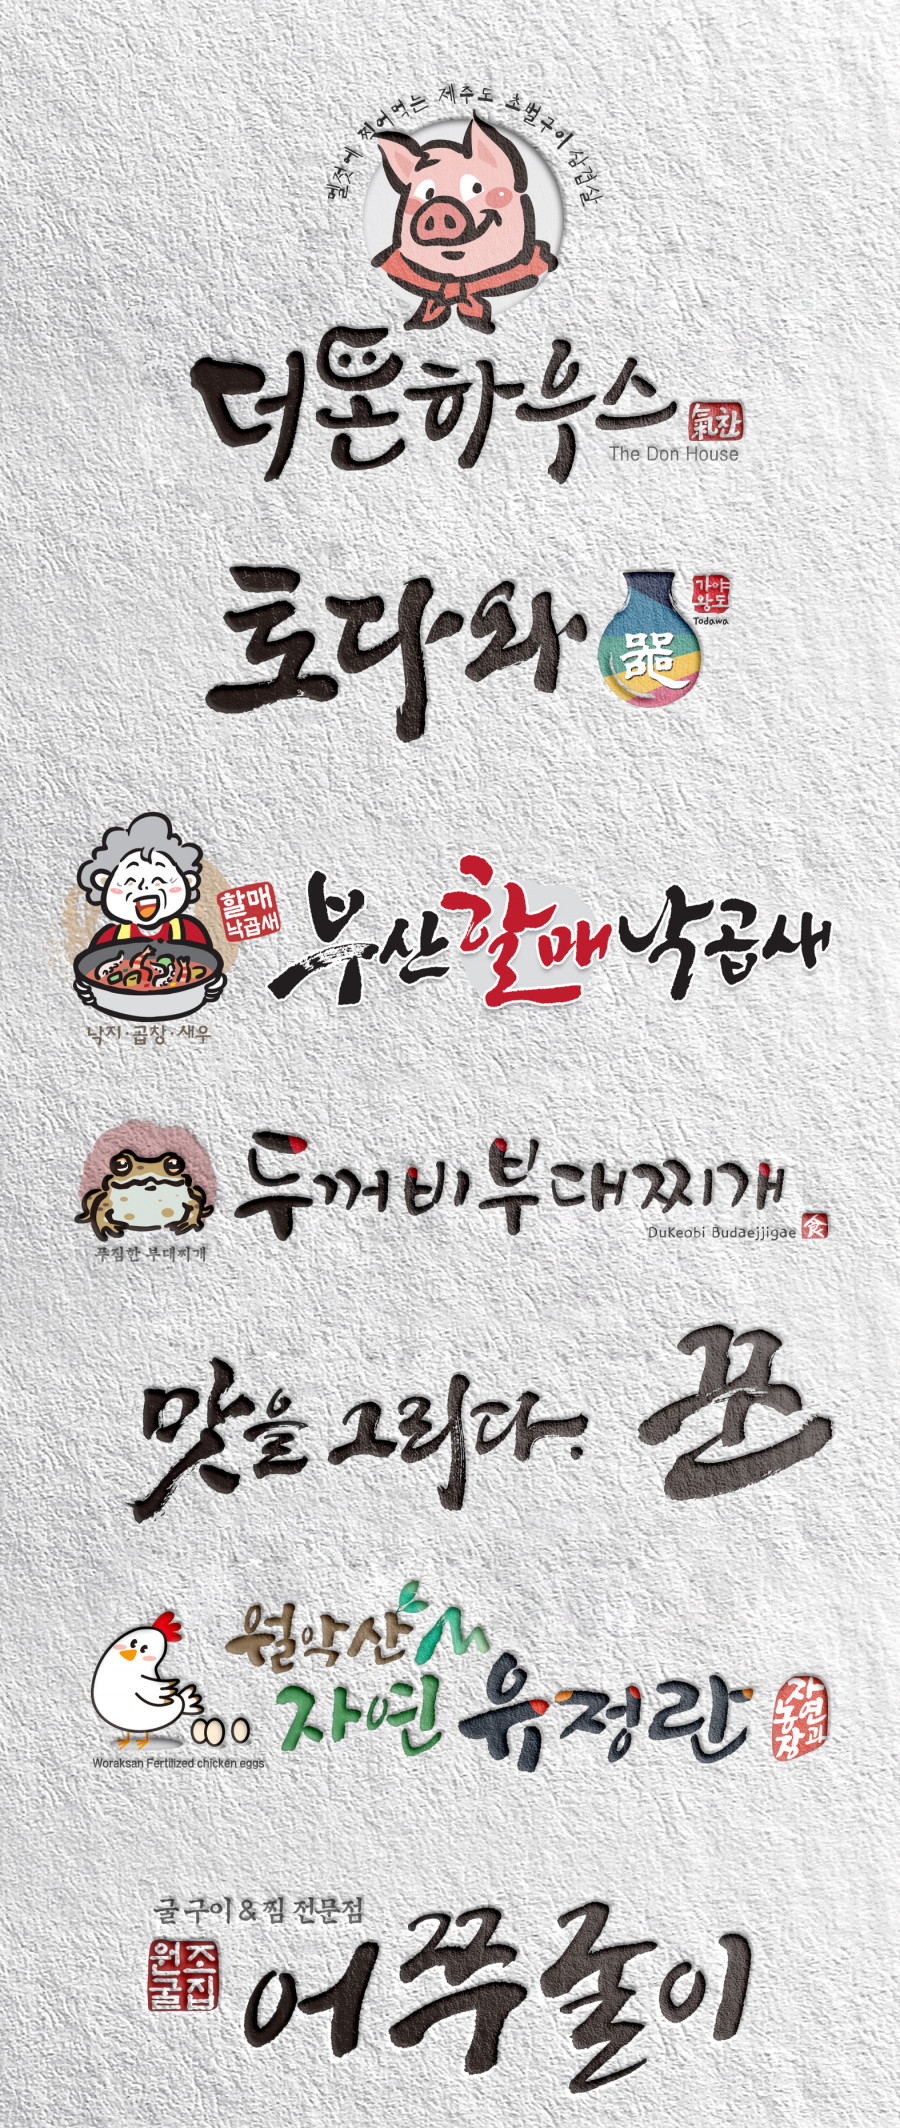 멜젓에 찍어먹는 제주도 초벌구이 삼겹살
더돈하우스
氣찬
The Don House
토다와
器
가야
왕도
Todawa
할매
낙곱새
부산할매낙곱새
낙지·곱창·새우
두꺼비부대찌개
DuKeobi Budaejjigae
食
푸짐한 부대찌개
맛을 그리다.
꾼
월악산
자연 유정란
자연과
농장
Woraksan Fertilized chicken eggs
굴구이&찜 전문점
원조
굴집
어꾸굴이